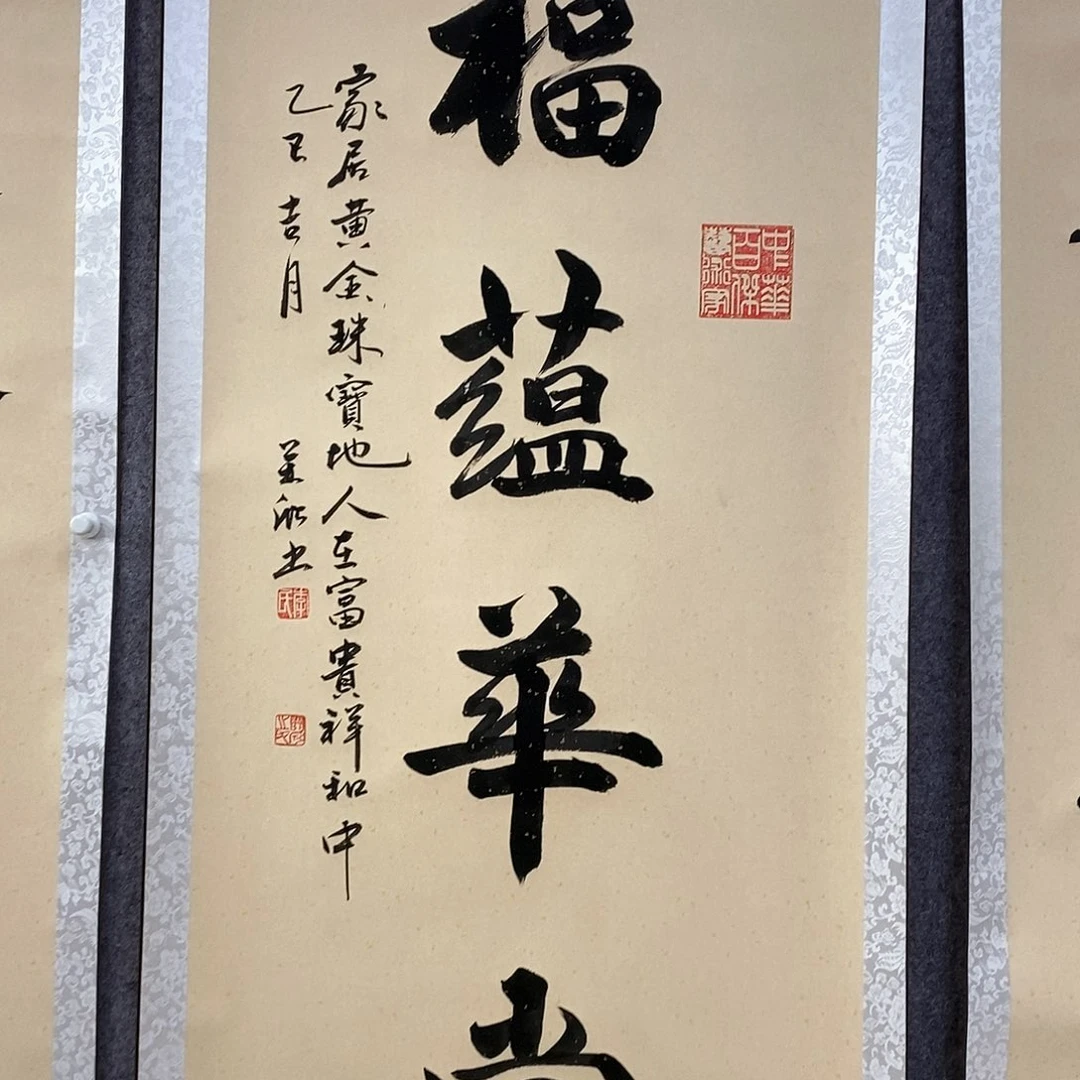 福蘊華堂
中華
百傑
藝術家
家居黄金珠寶地人在富貴祥和中
乙巳吉月
書